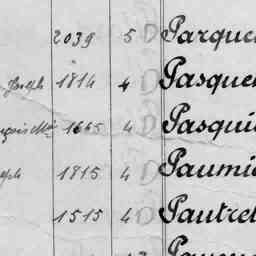 2039 5 D Parque
Joseph 1814 4 D Pasque
1665 4 D Pasqui
eph 1815 4 D Paumi
1515 4 D Pautrel